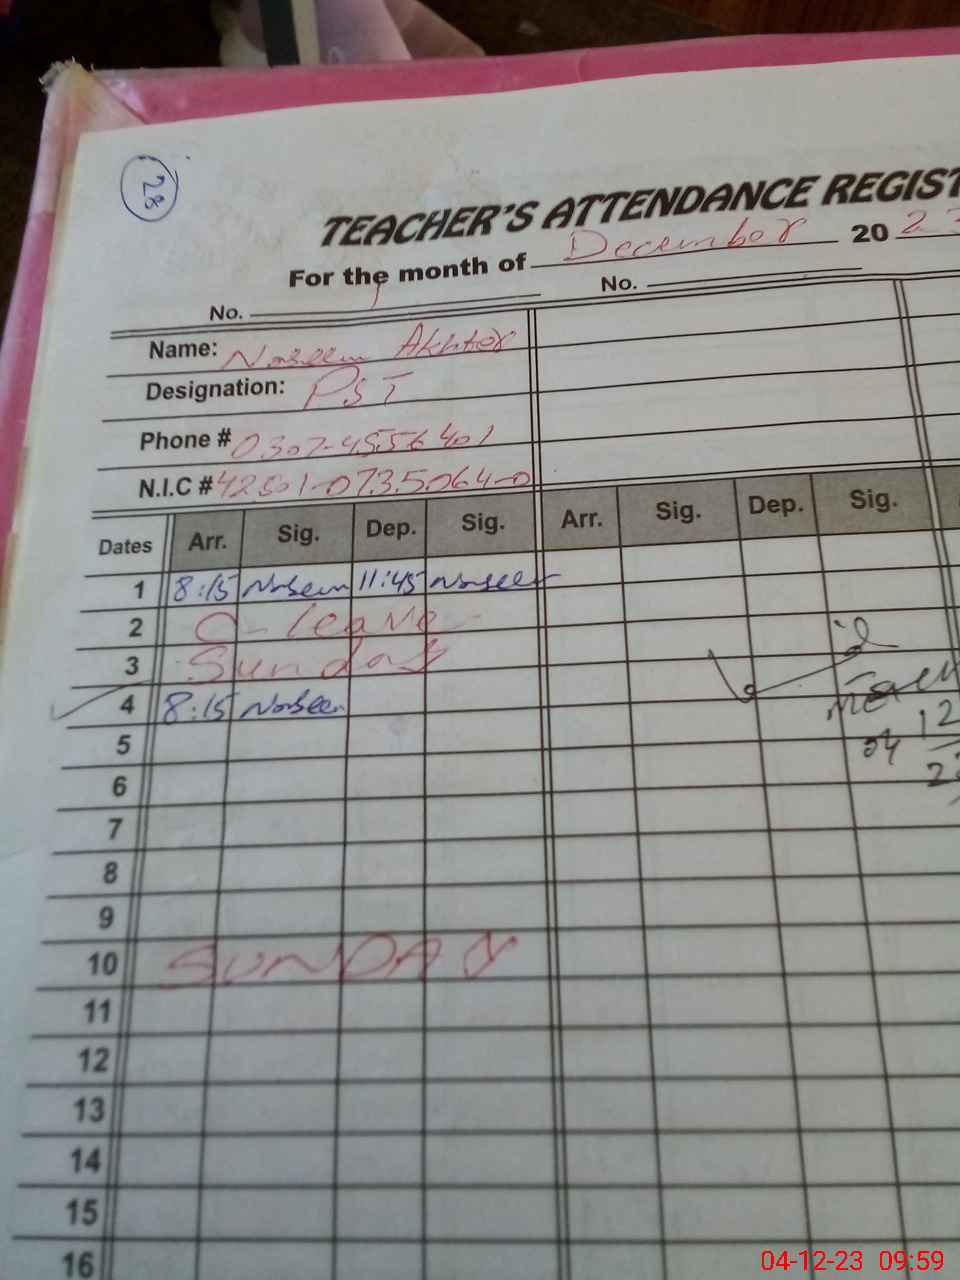 28
TEACHER'S ATTENDANCE REGIST
For the month of December 2023
No. No.
Name: Naseem Akhter
Designation: PST
Phone # 0307-4556401
N.I.C # 42501-0735064-0
Dates Arr. Sig. Dep. Sig. Arr. Sig. Dep. Sig.
1 8:15 Naseem 11:45 Naseem
2 C-leave
3 Sunday
4 8:15 Naseem
04 12
5
6
7
8
9
10 SUNDAY
11
12
13
14
15
16
04-12-23 09:59